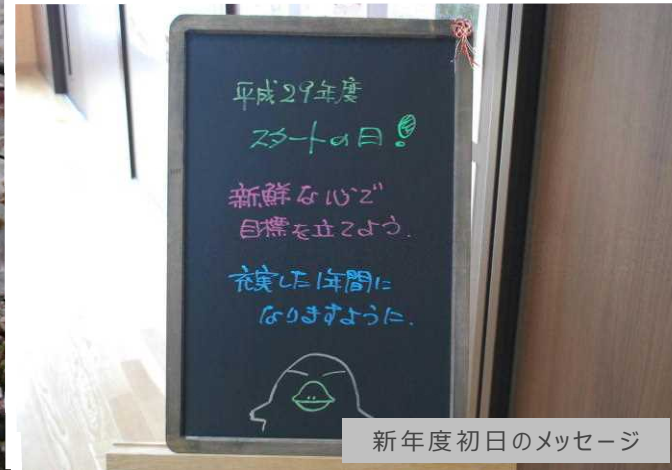 平成29年度
スタートの日!
新鮮な心で
目標を立てよう.
充実した1年間に
なりますように.
新年度初日のメッセージ